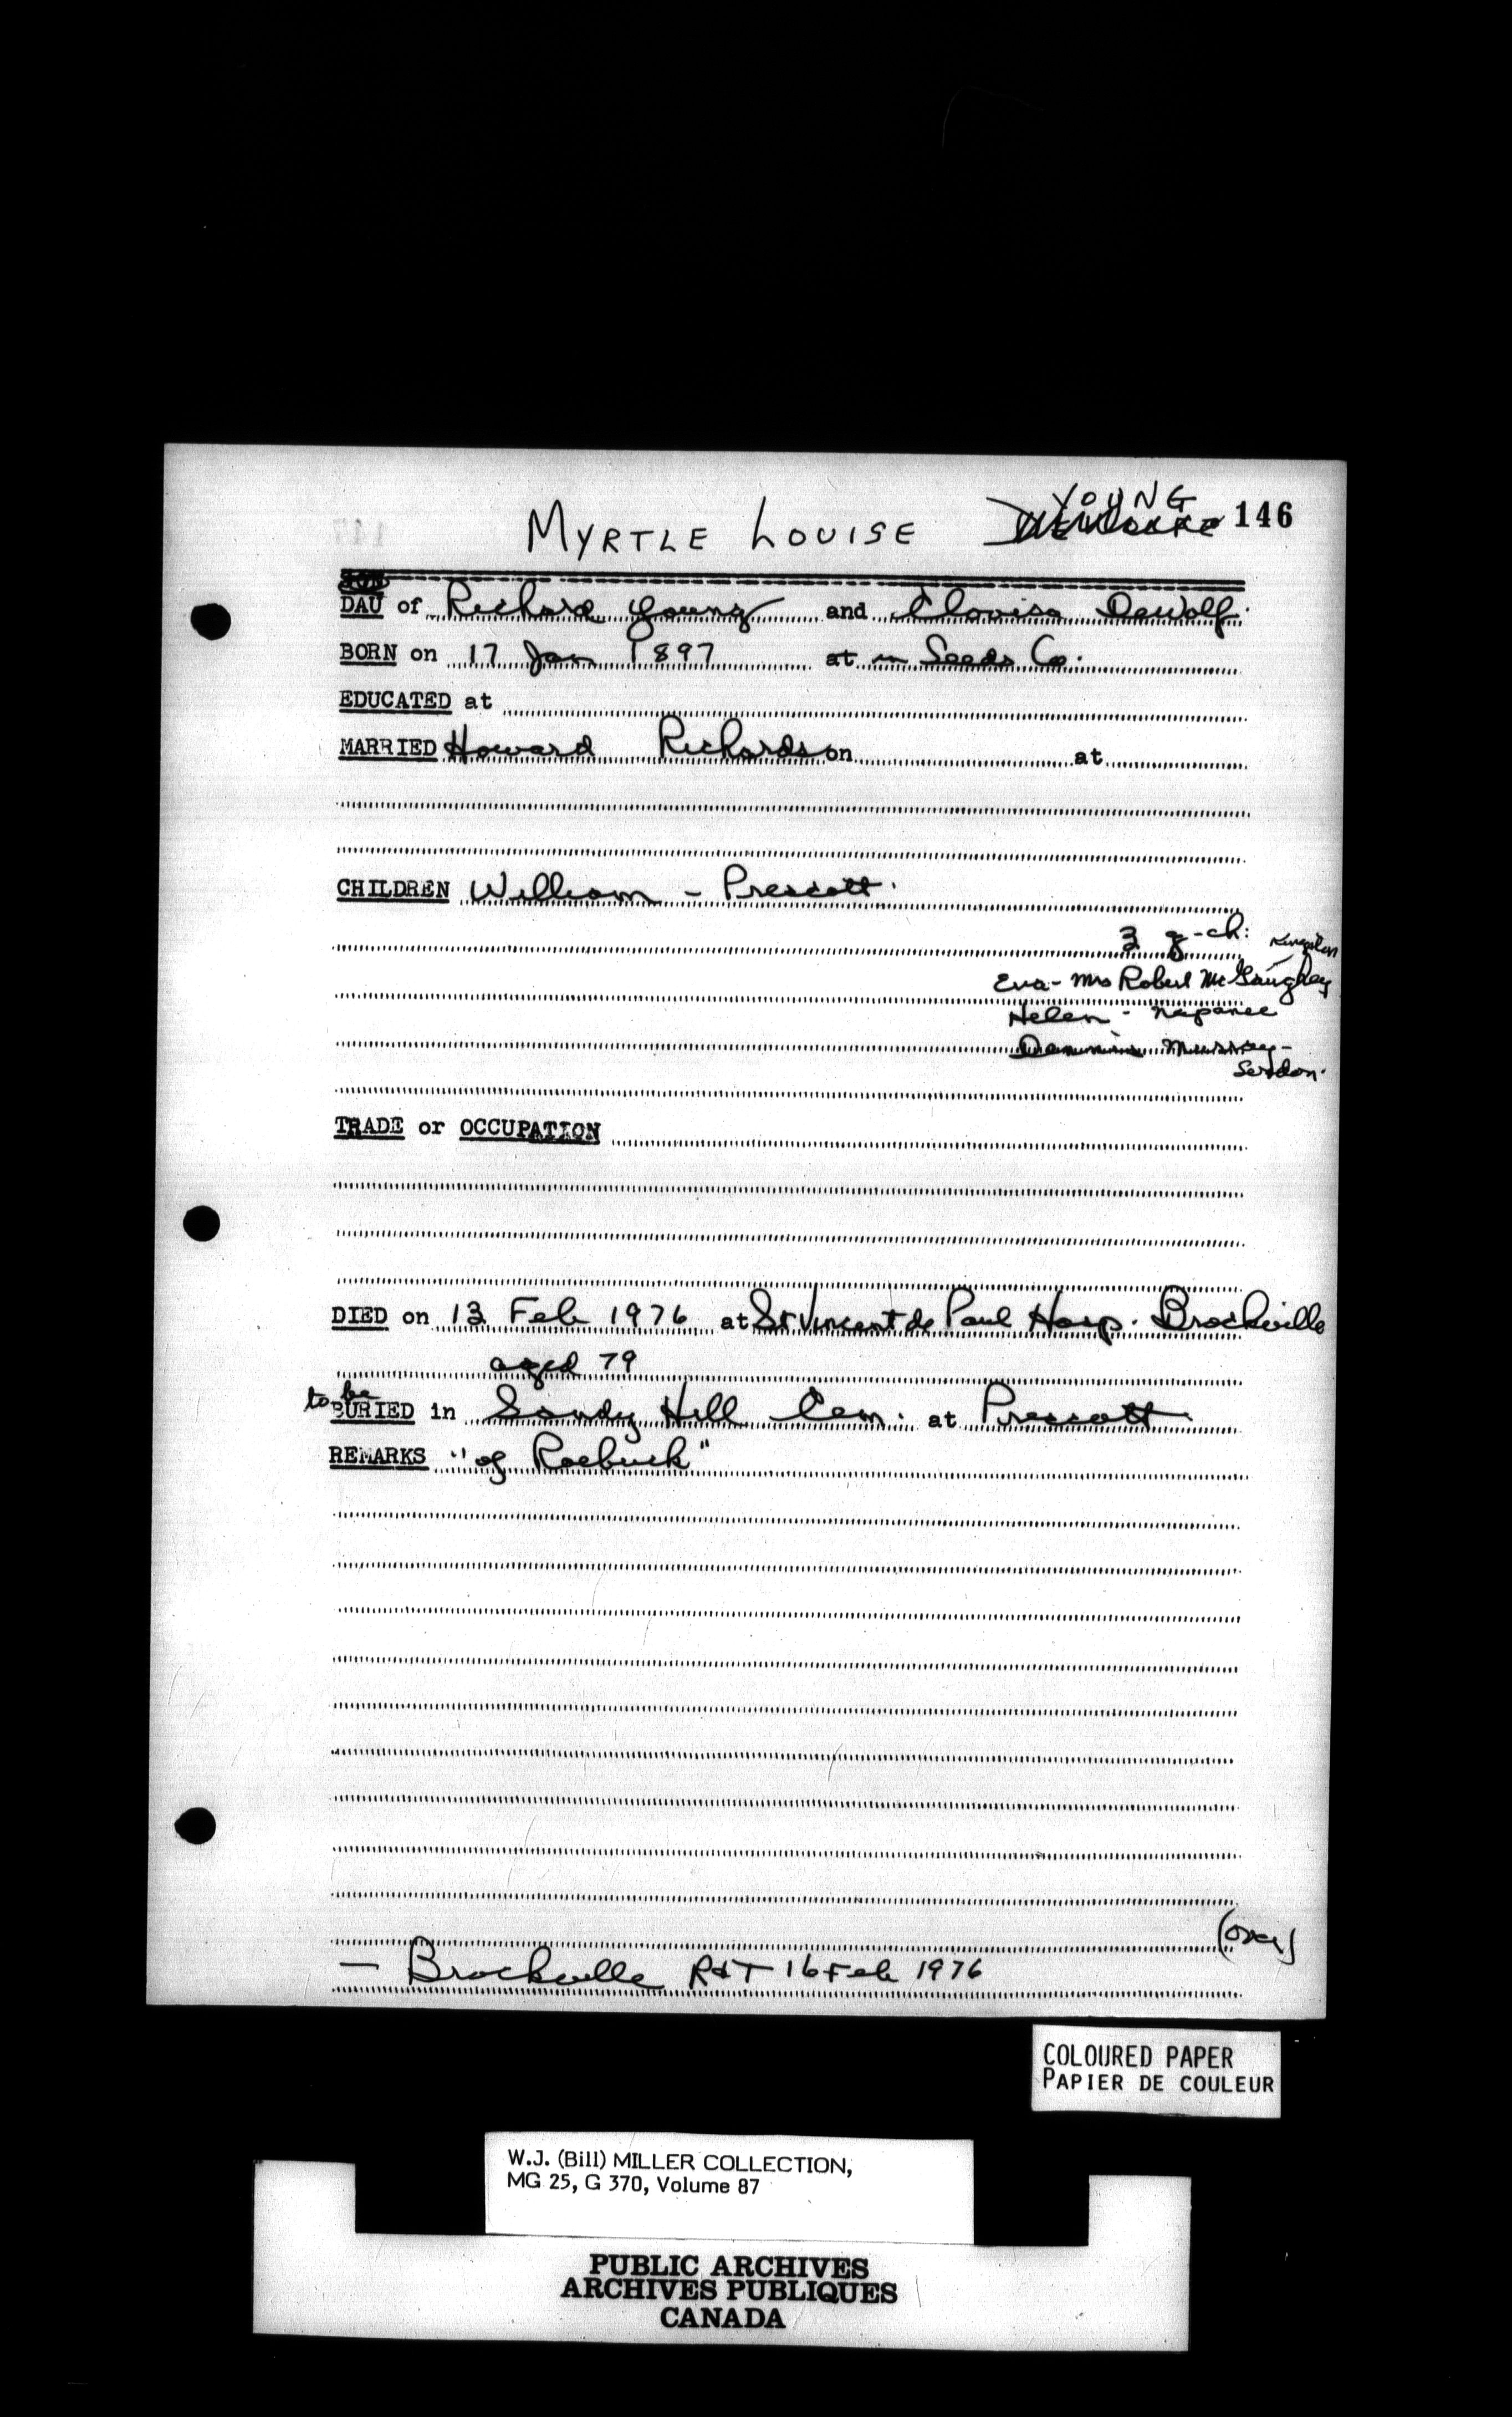 YOUNG
MYRTLE LOUISE 146
SON
DAU of Richard Young and Clovisa DeWolf.
BORN on 17 Jan 1897 at in Leeds Co.
EDUCATED at
MARRIED Howard Richardson on at
CHILDREN William - Prescott.
3 g-ch: Kingston
Eva - Mrs Robert McGaughey
Helen - Napanee
Murray -
TRADE or OCCUPATION
DIED on 13 Feb 1976 at St Vincent de Paul Hosp. Brockville
aged 79
to be
BURIED in Sandy Hill Cem. at Prescott
REMARKS "of Roebuck"
(over)
- Brockville R&T 16 Feb 1976
COLOURED PAPER
PAPIER DE COULEUR
W.J. (Bill) MILLER COLLECTION,
MG 25, G 370, Volume 87
PUBLIC ARCHIVES
ARCHIVES PUBLIQUES
CANADA